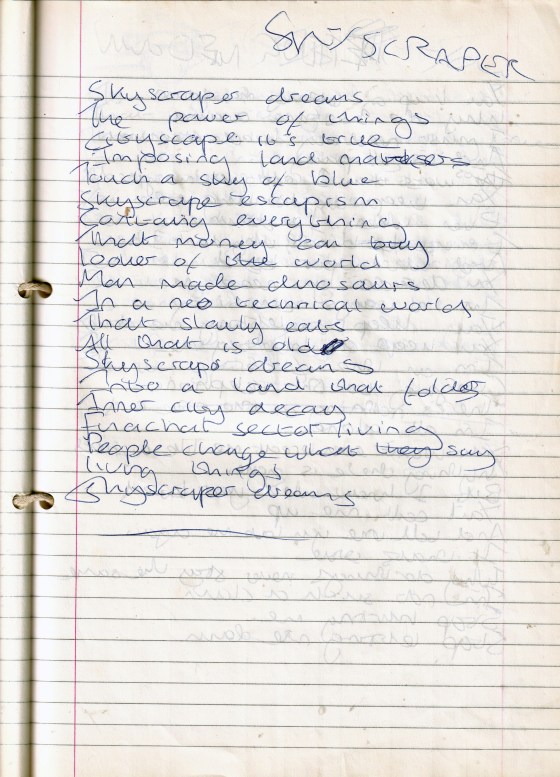 SKYSCRAPER
Skyscraper dreams
The power of things
Cityscape it's true
Imposing land
Touch a sky of blue
Skyscrape escapism
everything
That money can buy
of the world
Man made dinosaurs
In a neo technical world
That slowly eats
All that is old
Skyscraper dreams
Into a land that folds
Inner city decay
sector living
People change what they say
living things
Skyscraper dreams